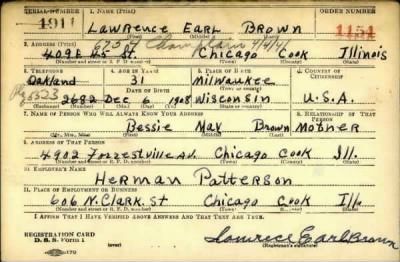 SERIAL NUMBER 1. NAME (Print) ORDER NUMBER
1911 Lawrence Earl Brown 1154
(First) (Middle) (Last)
2. ADDRESS (Print) 6757 Champlain
Chicago Cook Illinois
(Number and street or R. F. D. number) (Town) (County) (State)
3. TELEPHONE 4. AGE IN YEARS 5. PLACE OF BIRTH 6. COUNTRY OF CITIZENSHIP
Oakland 31 Milwaukee
DATE OF BIRTH (Town or county)
2682 Dec 6 1908 Wisconsin U.S.A.
(Exchange) (Number) (Mo.) (Day) (Yr.) (State or country)
7. NAME OF PERSON WHO WILL ALWAYS KNOW YOUR ADDRESS 8. RELATIONSHIP OF THAT PERSON
Bessie May Brown Mother
(Mr., Mrs., Miss) (First) (Middle) (Last)
9. ADDRESS OF THAT PERSON
4902 Forrestville Av. Chicago Cook Ill.
(Number and street or R. F. D. number) (Town) (County) (State)
10. EMPLOYER'S NAME
Herman Patterson
11. PLACE OF EMPLOYMENT OR BUSINESS
606 N. Clark. St Chicago Cook Ill.
(Number and street or R. F. D. number) (Town) (County) (State)
I AFFIRM THAT I HAVE VERIFIED ABOVE ANSWERS AND THAT THEY ARE TRUE.
REGISTRATION CARD
D. S. S. Form 1 (over) Lawrence Earl Brown
(Registrant's signature)